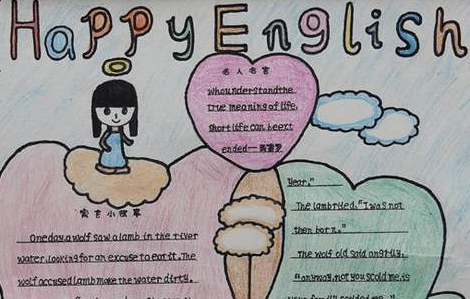 Happy English
名人名言
who understand the
true meaning of life,
Short life can be ext
ended——
寓言小故事
One day a wolf saw a lamb in the river
water, looking for an excuse to eat it. The
wolf accused lamb make the water dirty.
Year."
The lamb cried, "I was not
then born."
The wolf old said angrily,
"anyway, not you scold me is